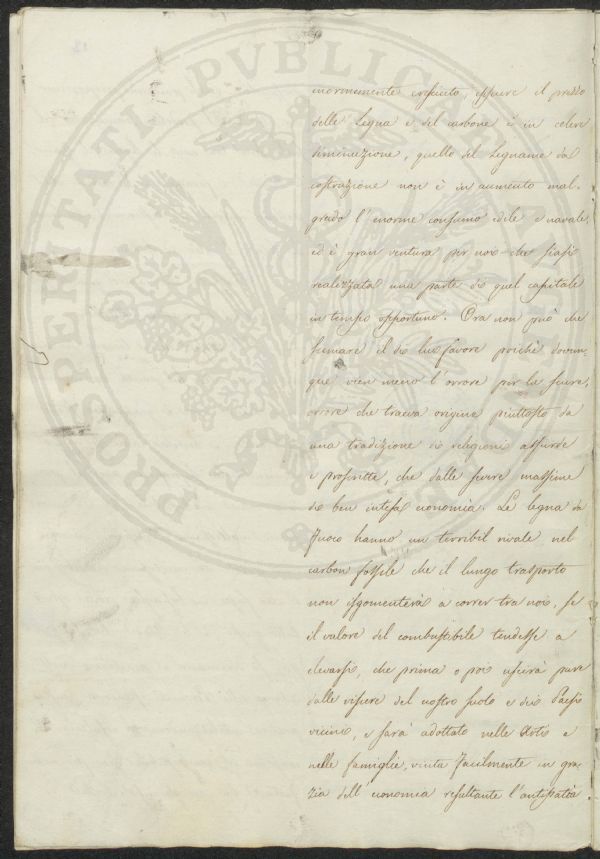 PROSPERITATI PVBLICAE
enormemente cresciuto, essere il prezzo
delle Legna e del carbone è in celere
diminuzione, quello del Legname da
costruzione non è in aumento mal-
grado l'enorme consumo edile e navale,
ed è gran ventura per noi che siasi
realizzata una parte di quel capitale
in tempo opportuno. Ora non può che
scemare il di lui favore poiché dovun-
que vien meno l'orrore per la scure,
orrore che traeva origine piuttosto da
una tradizione di religioni assurde
e proscritte, che dalle severe massime
di ben intesa economia. Le legna da
Fuoco hanno un terribil rivale nel
carbon fossile che il lungo trasporto
non isgomenterà a correr tra noi, se
il valore del combustibile tendesse a
elevarsi, che prima o poi uscirà pure
dalle viscere del nostro suolo e dei Paesi
vicini, e sarà adottato nelle Arti e
nelle famiglie, vinta facilmente in gra-
zia dell'economia resultante l'antipatia